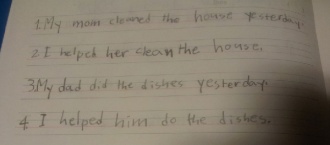 1. My mom cleaned the house yesterday.
2. I helped her clean the house.
3. My dad did the dishes yesterday.
4. I helped him do the dishes.